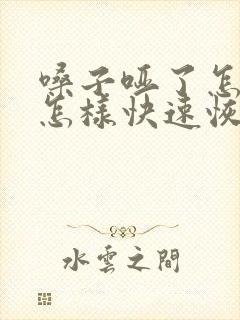 嗓子哑了怎
怎樣快速恢
水雲之間